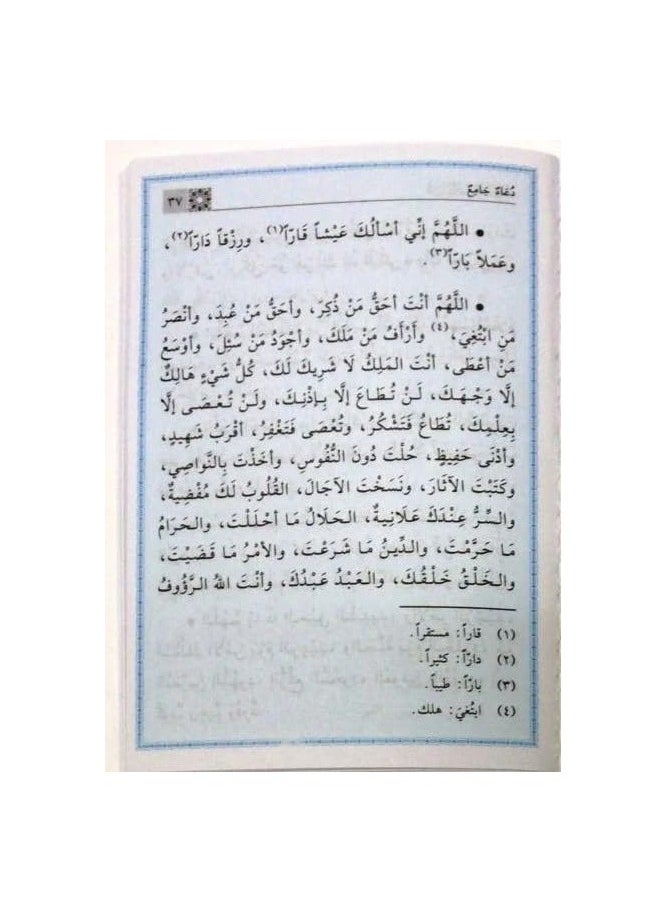 دُعَاءٌ جَامِعٌ ٣٧
• اللَّهُمَّ إنِّي أسْألُكَ عَيْشاً قَارّاً(١)، ورِزْقاً دَارّاً(٢)،
وعَمَلاً بَارّاً(٣).
• اللَّهُمَّ أنْتَ أحَقُّ مَنْ ذُكِرَ، وأحَقُّ مَنْ عُبِدَ، وأنْصَرُ
مَنِ ابْتُغِيَ،(٤) وَأَرْأَفُ مَنْ مَلَكَ، وأجْوَدُ مَنْ سُئِلَ، وأوْسَعُ
مَنْ أعْطَى، أنْتَ المَلِكُ لَا شَرِيكَ لَكَ، كُلُّ شَيْءٍ هَالِكٌ
إلَّا وَجْهَكَ، لَنْ تُطَاعَ إلَّا بِإذْنِكَ، ولَنْ تُعْصَى إلَّا
بِعِلْمِكَ، تُطَاعُ فَتَشْكُرُ، وتُعْصَى فَتَغْفِرُ، أقْرَبُ شَهِيدٍ،
وأدْنَى حَفِيظٍ، حُلْتَ دُونَ النُّفُوسِ، وأخَذْتَ بِالنَّواصِي،
وكَتَبْتَ الآثَارَ، ونَسَخْتَ الآجَالَ، القُلُوبُ لَكَ مُفْضِيةٌ،
والسِّرُّ عِنْدَكَ عَلَانِيةٌ، الحَلَالُ مَا أحْلَلْتَ، والحَرَامُ
مَا حَرَّمْتَ، والدِّينُ مَا شَرَعْتَ، والأمْرُ مَا قَضَيْتَ،
والخَلْقُ خَلْقُكَ، والعَبْدُ عَبْدُكَ، وأنْتَ اللهُ الرَّؤُوفُ
(١) قاراً: مستقراً.
(٢) دارّاً: كثيراً.
(٣) بارّاً: طيباً.
(٤) ابتُغيَ: هلك.